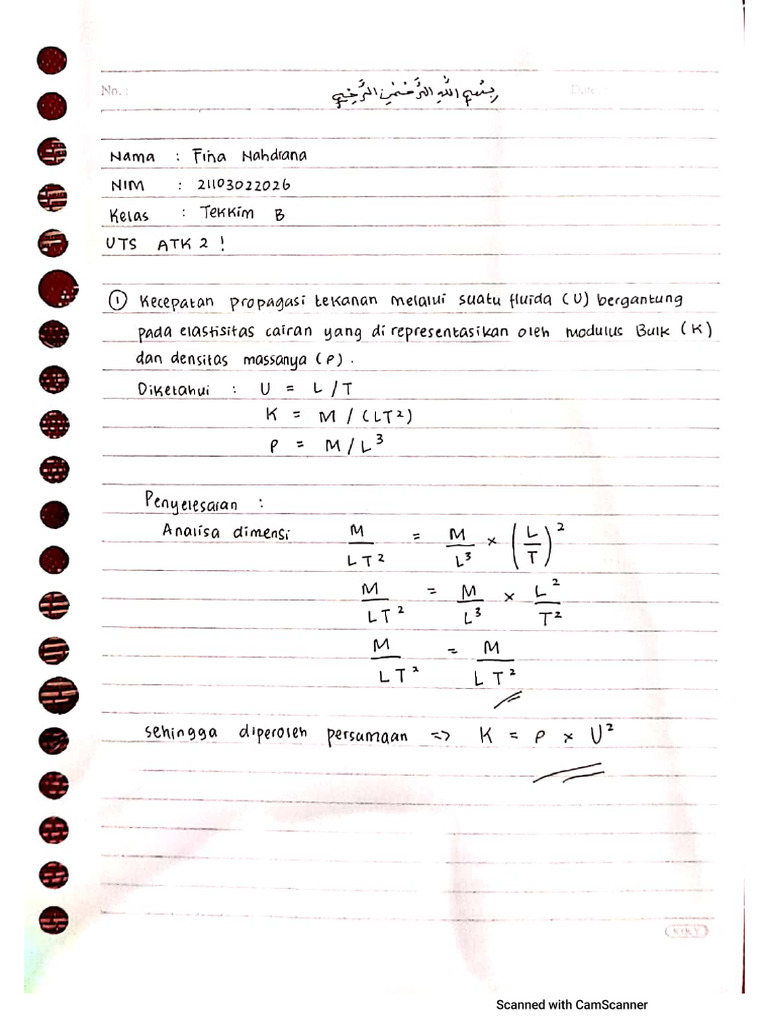 No. :
بِسْمِ اللهِ الرَّحْمٰنِ الرَّحِيْمِ
Date :
Nama : Fina Nahdiana
NIM : 21103022026
Kelas : Tekkim B
UTS ATK 2 !
① Kecepatan propagasi tekanan melalui suatu fluida (U) bergantung
pada elastisitas cairan yang di representasikan oleh modulus Bulk (K)
dan densitas massanya (ρ).
Diketahui : U = L/T
K = M/(LT²)
ρ = M/L³
Penyelesaian :
Analisa dimensi M/LT² = M/L³ × (L/T)²
M/LT² = M/L³ × L²/T²
M/LT² = M/LT²
sehingga diperoleh persamaan => K = ρ × U²
KIKY
Scanned with CamScanner